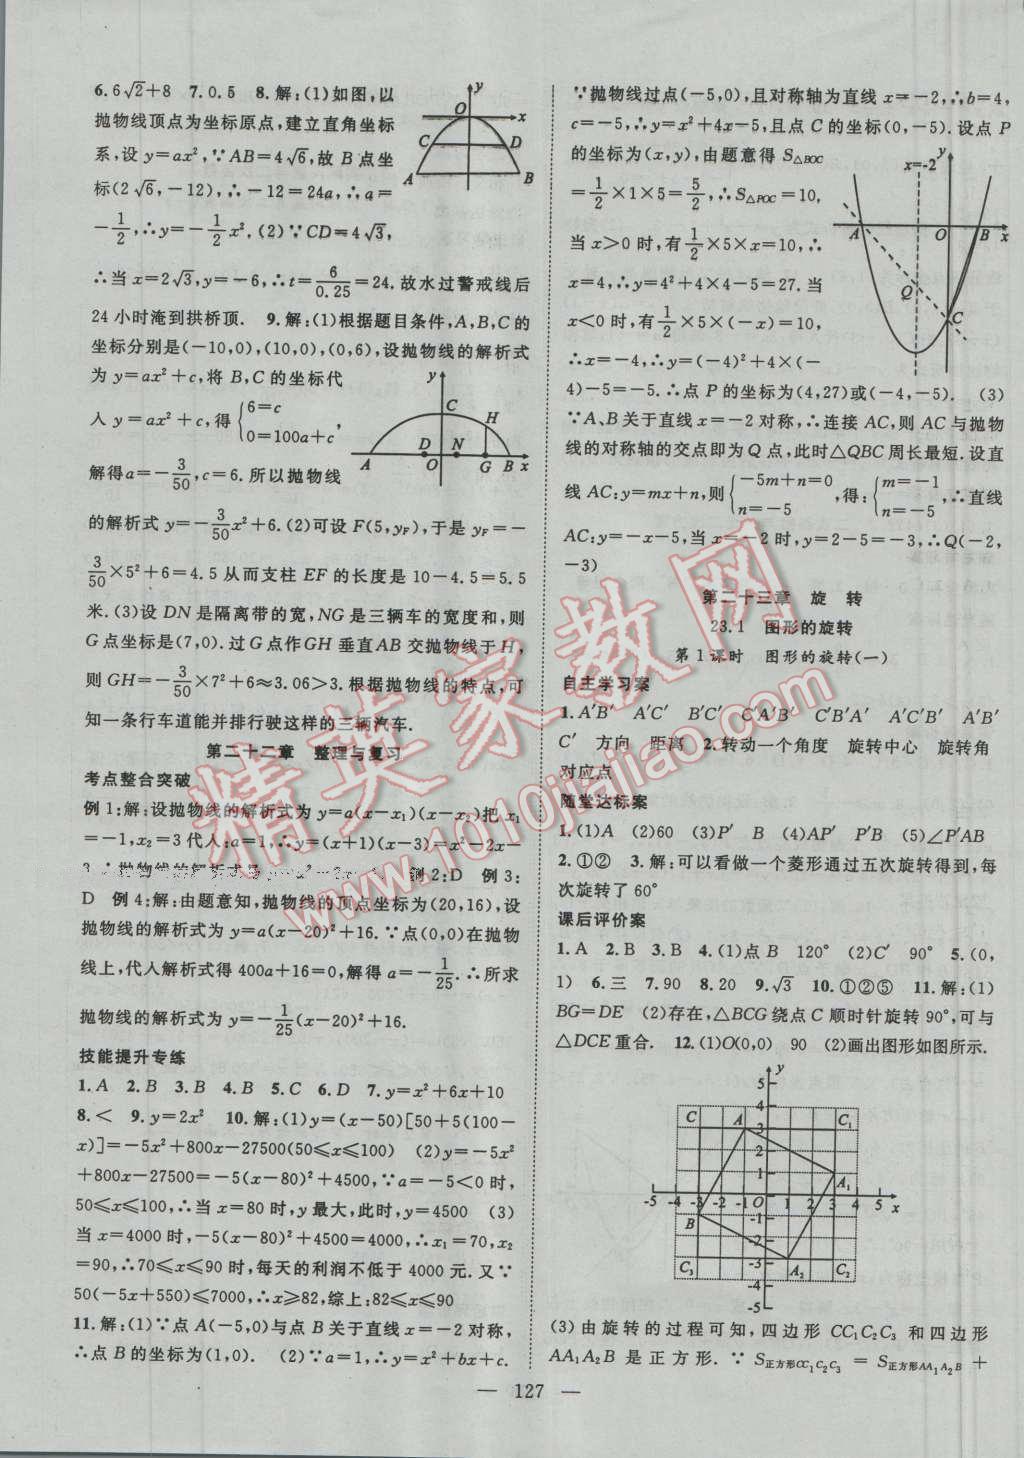 6. 6√2+8　7. 0.5　8. 解:(1)如图,以
抛物线顶点为坐标原点,建立直角坐标
系,设 y=ax²,∵AB=4√6,故 B 点坐
标(2√6,-12),∴-12=24a,∴a=
-1/2,∴y=-1/2x². (2)∵CD=4√3,
∴当 x=2√3,y=-6,∴t=6/0.25=24. 故水过警戒线后
24 小时淹到拱桥顶.　9. 解:(1)根据题目条件,A,B,C 的
坐标分别是(-10,0),(10,0),(0,6),设抛物线的解析式
为 y=ax²+c,将 B,C 的坐标代
入 y=ax²+c,得{6=c 0=100a+c,
解得a=-3/50,c=6. 所以抛物线
的解析式 y=-3/50x²+6. (2)可设 F(5,yF),于是 yF=-
3/50×5²+6=4.5 从而支柱 EF 的长度是 10-4.5=5.5
米. (3)设 DN 是隔离带的宽,NG 是三辆车的宽度和,则
G 点坐标是(7,0). 过 G 点作 GH 垂直 AB 交抛物线于 H,
则 GH=-3/50×7²+6≈3.06>3. 根据抛物线的特点,可
知一条行车道能并排行驶这样的三辆汽车.
第二十二章　整理与复习
考点整合突破
例 1:解:设抛物线的解析式为 y=a(x-x₁)(x-x₂)把 x₁
=-1,x₂=3 代人:a=1,∴y=(x+1)(x-3)=x²-2x-
3 ∴抛物线的解析式是 例 2:D　例 3:
D　例 4:解:由题意知,抛物线的顶点坐标为(20,16),设
抛物线的解析式为 y=a(x-20)²+16. ∵点(0,0)在抛物
线上,代人解析式得 400a+16=0,解得 a=-1/25. ∴所求
抛物线的解析式为 y=-1/25(x-20)²+16.
技能提升专练
1. A　2. B　3. B　4. B　5. C　6. D　7. y=x²+6x+10
8. <　9. y=2x²　10. 解:(1)y=(x-50)[50+5(100-
x)]=-5x²+800x-27500(50≤x≤100)　(2)y=-5x²
+800x-27500=-5(x-80)²+4500. ∵a=-5<0 时,
50≤x≤100,∴当 x=80 时,y 最大,此时,y=4500　(3)
当 x=4000 时,-5(x-80)²+4500=4000,∴x₁=70,x₂
=90,∴70≤x≤90 时,每天的利润不低于 4000 元. 又∵
50(-5x+550)≤7000,∴x≥82,综上:82≤x≤90
11. 解:(1)∵点 A(-5,0)与点 B 关于直线 x=-2 对称,
∴点 B 的坐标为(1,0).　(2)∵a=1,∴y=x²+bx+c.
O　x　y　C　D　A　B
y　C　H　A　D　O　N　G　B　x
∵抛物线过点(-5,0),且对称轴为直线 x=-2,∴b=4,
c=-5,∴y=x²+4x-5,且点 C 的坐标(0,-5). 设点 P
的坐标为(x,y),由题意得 S△BOC
=1/2×1×5=5/2,∴S△POC=10,
当 x>0 时,有1/2×5×x=10,∴
x=4,∴y=4²+4×4-5=27. 当
x<0 时,有1/2×5×(-x)=10,
∴x=-4,∴y=(-4)²+4×(-
4)-5=-5. ∴点 P 的坐标为(4,27)或(-4,-5).　(3)
∵A、B 关于直线 x=-2 对称,∴连接 AC,则 AC 与抛物
线的对称轴的交点即为 Q 点,此时△QBC 周长最短. 设直
线 AC:y=mx+n,则{-5m+n=0 n=-5,得:{m=-1 n=-5,∴直线
AC:y=-x-5,当 x=-2 时,y=2-5=-3,∴Q(-2,
-3)
x=-2　y　A　O　B　x　Q　C
第二十三章　旋　转
23.1　图形的旋转
第 1 课时　图形的旋转(一)
自主学习案
1. A′B′　A′C′　B′C′　C′A′B′　C′B′A′　A′C′B′　A′B′
C′　方向　距离　2. 转动一个角度　旋转中心　旋转角
对应点
随堂达标案
1. (1)A　(2)60　(3)P′　B　(4)AP′　P′B　(5)∠P′AB
2. ①②　3. 解:可以看做一个菱形通过五次旋转得到,每
次旋转了 60°
课后评价案
1. A　2. B　3. B　4. (1)点 B　120°　(2)C′　90°　5. (0,
1)　6. 三　7. 90　8. 20　9. √3　10. ①②⑤　11. 解:(1)
BG=DE　(2)存在,△BCG 绕点 C 顺时针旋转 90°,可与
△DCE 重合.　12. (1)O(0,0)　90　(2)画出图形如图所示.
y　5　4　3　2　1　C　A　C₁　A₁
-5　-4　-3　-2　-1　O　1　2　3　4　5　x
B　-1　-2　-3　-4　-5　C₃　A₂　C₂
(3)由旋转的过程可知,四边形 CC₁C₂C₃ 和四边形
AA₁A₂B 是正方形. ∵ S正方形CC₁C₂C₃ = S正方形AA₁A₂B +
— 127 —
精英家教网
www.1010jiajiao.com